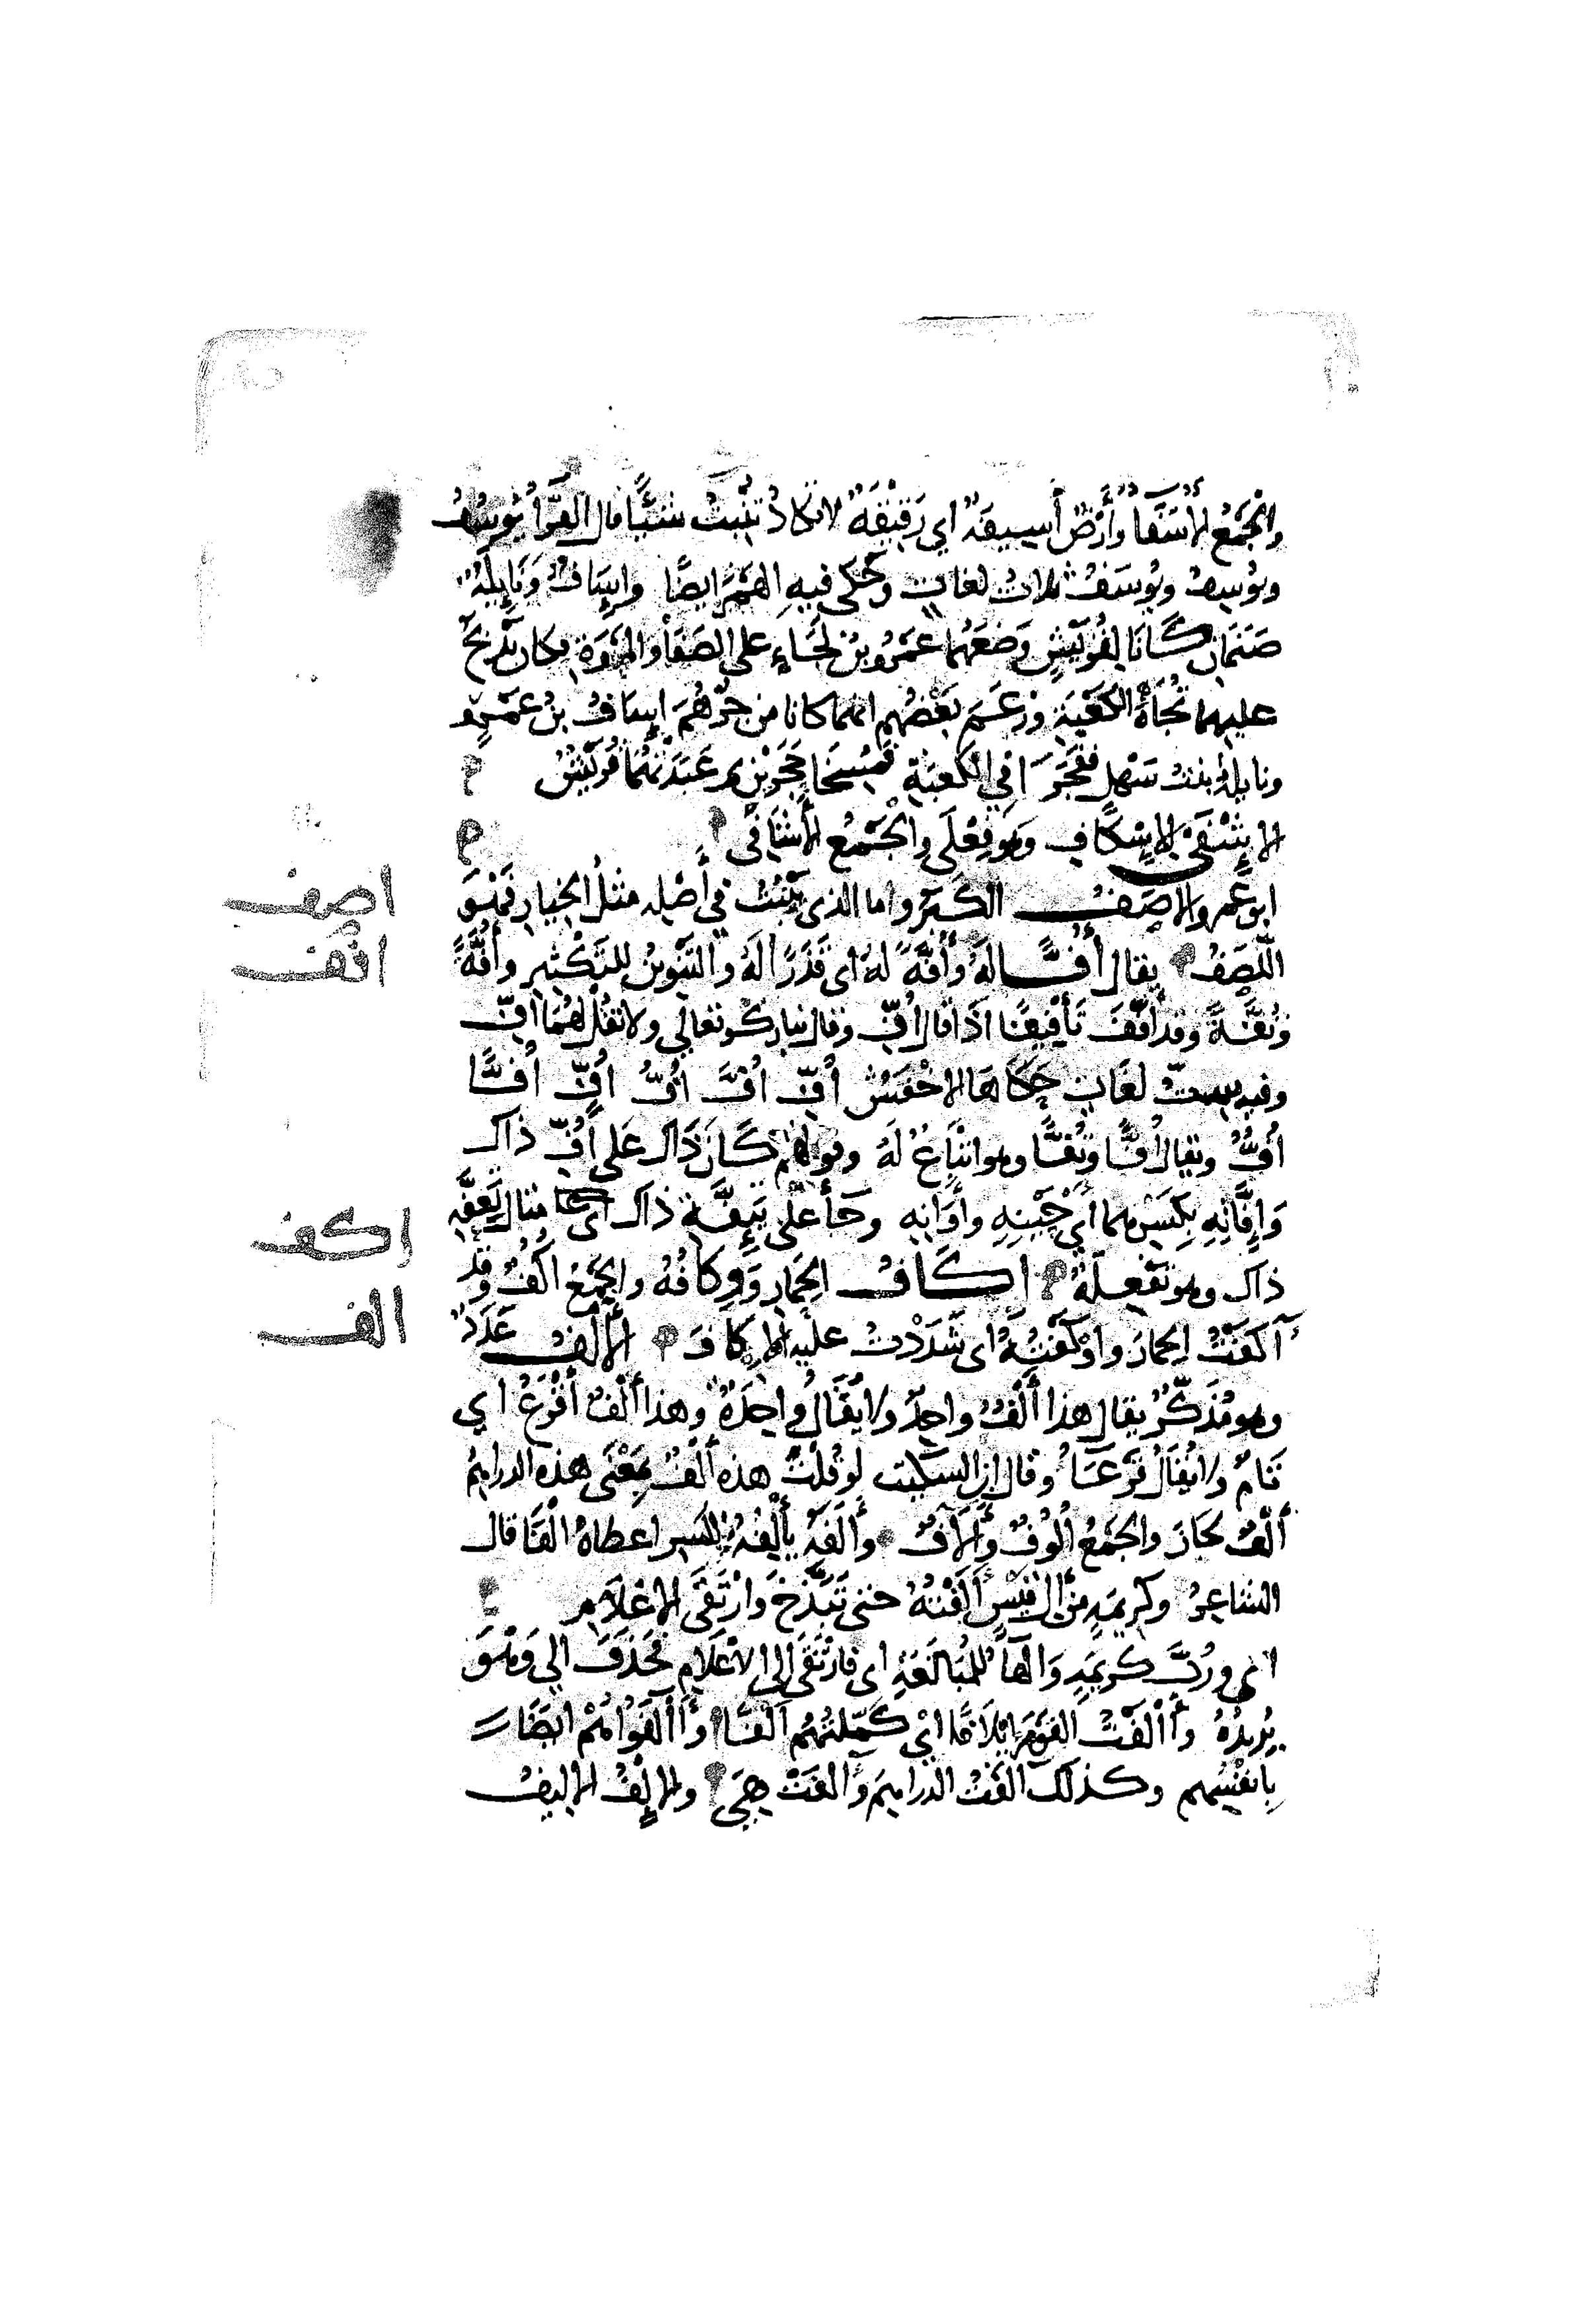 والجمع الأُسَفَاءُ وأَرْضٌ أَسِيفَةٌ اي رَقِيقَةٌ لا تكادُ تُنْبِتُ شَيْئًا قال الفَرَّاءُ يُوسُفُ
ويُوسِفُ ويُوسَفُ ثلاثُ لغاتٍ وحُكى فيهِ الهَمْزُ ايضًا وإسَافٌ ونَايِلَةُ
صَنَمَانِ كَانَا لِقُرَيْشٍ وَضَعَهُما عَمْرُو بْنُ لُحَاءٍ على الصَفَا والمَرْوَةِ وكان يُذْبَحُ
عليهما تُجَاهَ الكَعْبَةِ وزعَمَ بَعْضُهم انهما كانا من جُرْهُمَ إسافُ بنُ عَمْرٍو
ونايلةُ بنتُ سَهْلٍ ففَجَرَا في الكعبَةِ فَمُسِخَا حَجَرَيْنِ ثم عَبَدَتْهُمَا قُرَيْشٌ
الإشْفَى للإسْكَافِ وهو فِعْلَى والجَمْعُ الأَشَافى
ابو عمرو الأصَفُ الكَبَرُ واما الذى يَنْبُتُ في أَصْلِهِ مثلُ الخيارِ فَهْوَ
اللَّصَفُ يقال أُفًّا لَهُ وأُفَّةً لهُ اى قَذَرًا لَهُ والتَّنْوِينُ للتَكْثِيرِ وأُفَّةً
وتُفَّةً وقد أَفَّفَ تَأْفِيفًا اذا قال أُفٍّ وقال تبارك وتعالى ولا تَقُلْ لهُمَا أُفٍّ
وفيه ستُّ لغاتٍ حَكَاهَا الأخْفَشُ أُفِّ أُفَّ أُفُّ أُفٍّ أُفًّا
أُفٌّ ويُقالُ أُفًّا وتُفًّا وهو اتْبَاعٌ لَهُ وقولهُم كَانَ ذَاكَ عَلى إفِّ ذاك
وَإِفَّانِهِ بِكَسْرِهِما أي حِينِهِ وأَوَانِهِ وجَأَ على تَئِفَّةِ ذاك اى مثال تَعِفَّةِ
ذاك وهو تَفْعِلَةٌ إكَافُ الحِمَارِ وَوِكَافُهُ والجَمْعُ أُكُفٌ وقد
آكَفْتُ الحِمَارَ وأَوْكَفْتُهُ اى شَدَدْتُ عَلَيْهِ الإكافَ الأَلْفُ عَدَدٌ
وهو مُذَكَّرٌ يقال هذا أَلْفٌ واحِدٌ ولا يُقَالُ واحِدَةٌ وهذا أَلْفٌ أَقْرَعُ اي
تَامٌ ولا يُقَالُ قَرْعَاءُ وقال ابن السكيت لو قُلْتَ هذه أَلْفٌ بمَعْنَى هذه الدراهِمُ
أَلْفٌ لجَازَ والجَمْعُ أُلُوْفٌ وآلَافٌ وأَلَفَهُ يَأْلِفُهُ بالكسر اعطاهُ أَلْفًا قال
الشاعِرُ وكَرِيمَةٍ من آلِ قَيْسٍ أَلَفْتُهُ حتى تَبَذَّخَ وارْتَقَى الأعْلَامِ
اى ورُبَّ كَرِيمَةٍ والهاءُ للمُبَالَغَةِ اى فارْتَقَى إلى الأعْلَامِ فَحَذَفَ الى وَهْوَ
يُرِيدُهُ وأَأْلَفْتُ القَوْمَ إيلَافًا ايْ كَمَّلْتُهُم أَلْفًا وأَأْلَفُوا هُمْ ايضًا
بأنفُسِهم وكذلك آلَفْتُ الدراهِمَ وآلَفَتْ هِيَ والإلْفُ الأليفُ
اصف
افف
اكف
الف